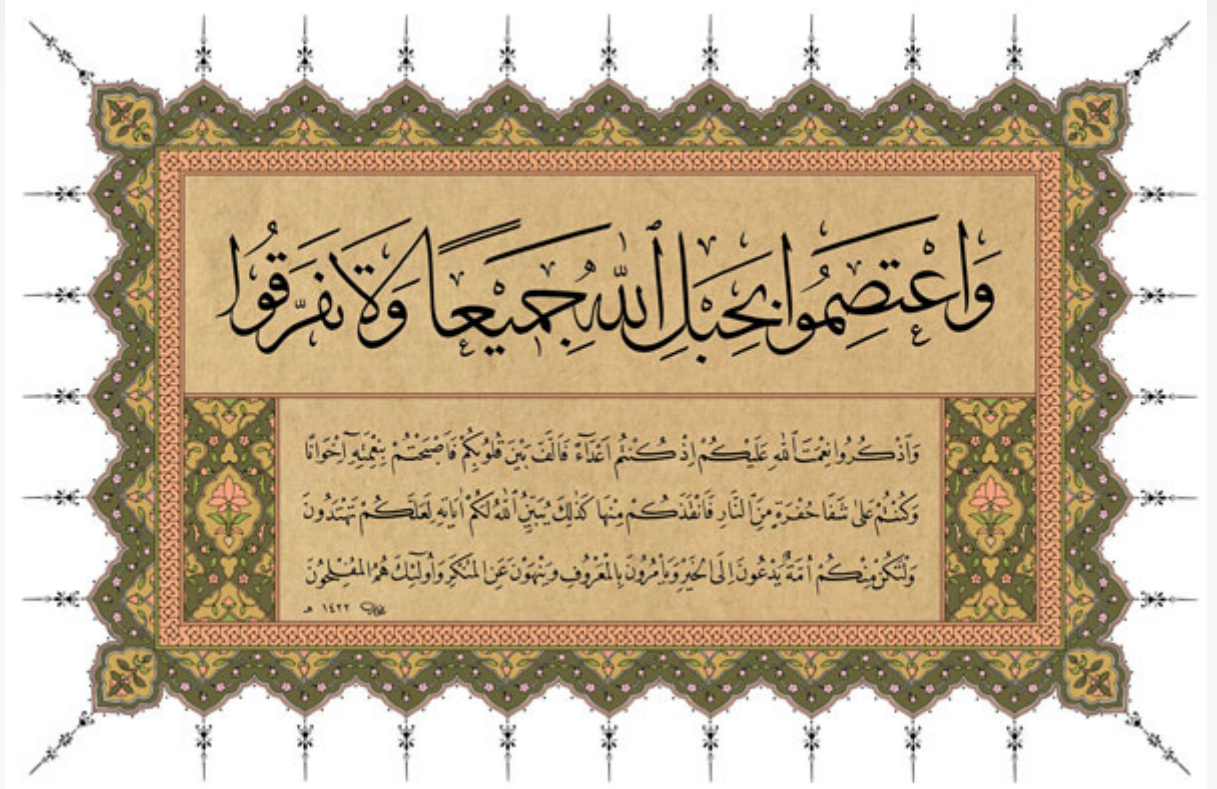 وَاعْتَصِمُوا بِحَبْلِ ٱللّٰهِ جَمِيْعًا وَلَا تَفَرَّقُوا
وَاَذْكُرُوا نِعْمَتَ ٱللّٰهِ عَلَيْكُمْ اِذْ كُنْتُمْ اَعْدَآءً فَاَلَّفَ بَيْنَ قُلُوبِكُمْ فَاَصْبَحْتُمْ بِنِعْمَتِهِٓ اِخْوَانًا
وَكُنْتُمْ عَلٰى شَفَا حُفْرَةٍ مِنَ ٱلنَّارِ فَاَنْقَذَكُمْ مِنْهَا كَذٰلِكَ يُبَيِّنُ ٱللّٰهُ لَكُمْ اٰيَاتِهِ لَعَلَّكُمْ تَهْتَدُونَ
وَلْتَكُنْ مِنْكُمْ اُمَّةٌ يَدْعُونَ اِلَى الْخَيْرِ وَيَأْمُرُونَ بِالْمَعْرُوفِ وَيَنْهَوْنَ عَنِ الْمُنْكَرِ وَاُولٰٓئِكَ هُمُ الْمُفْلِحُونَ
١٤٢٢ هـ